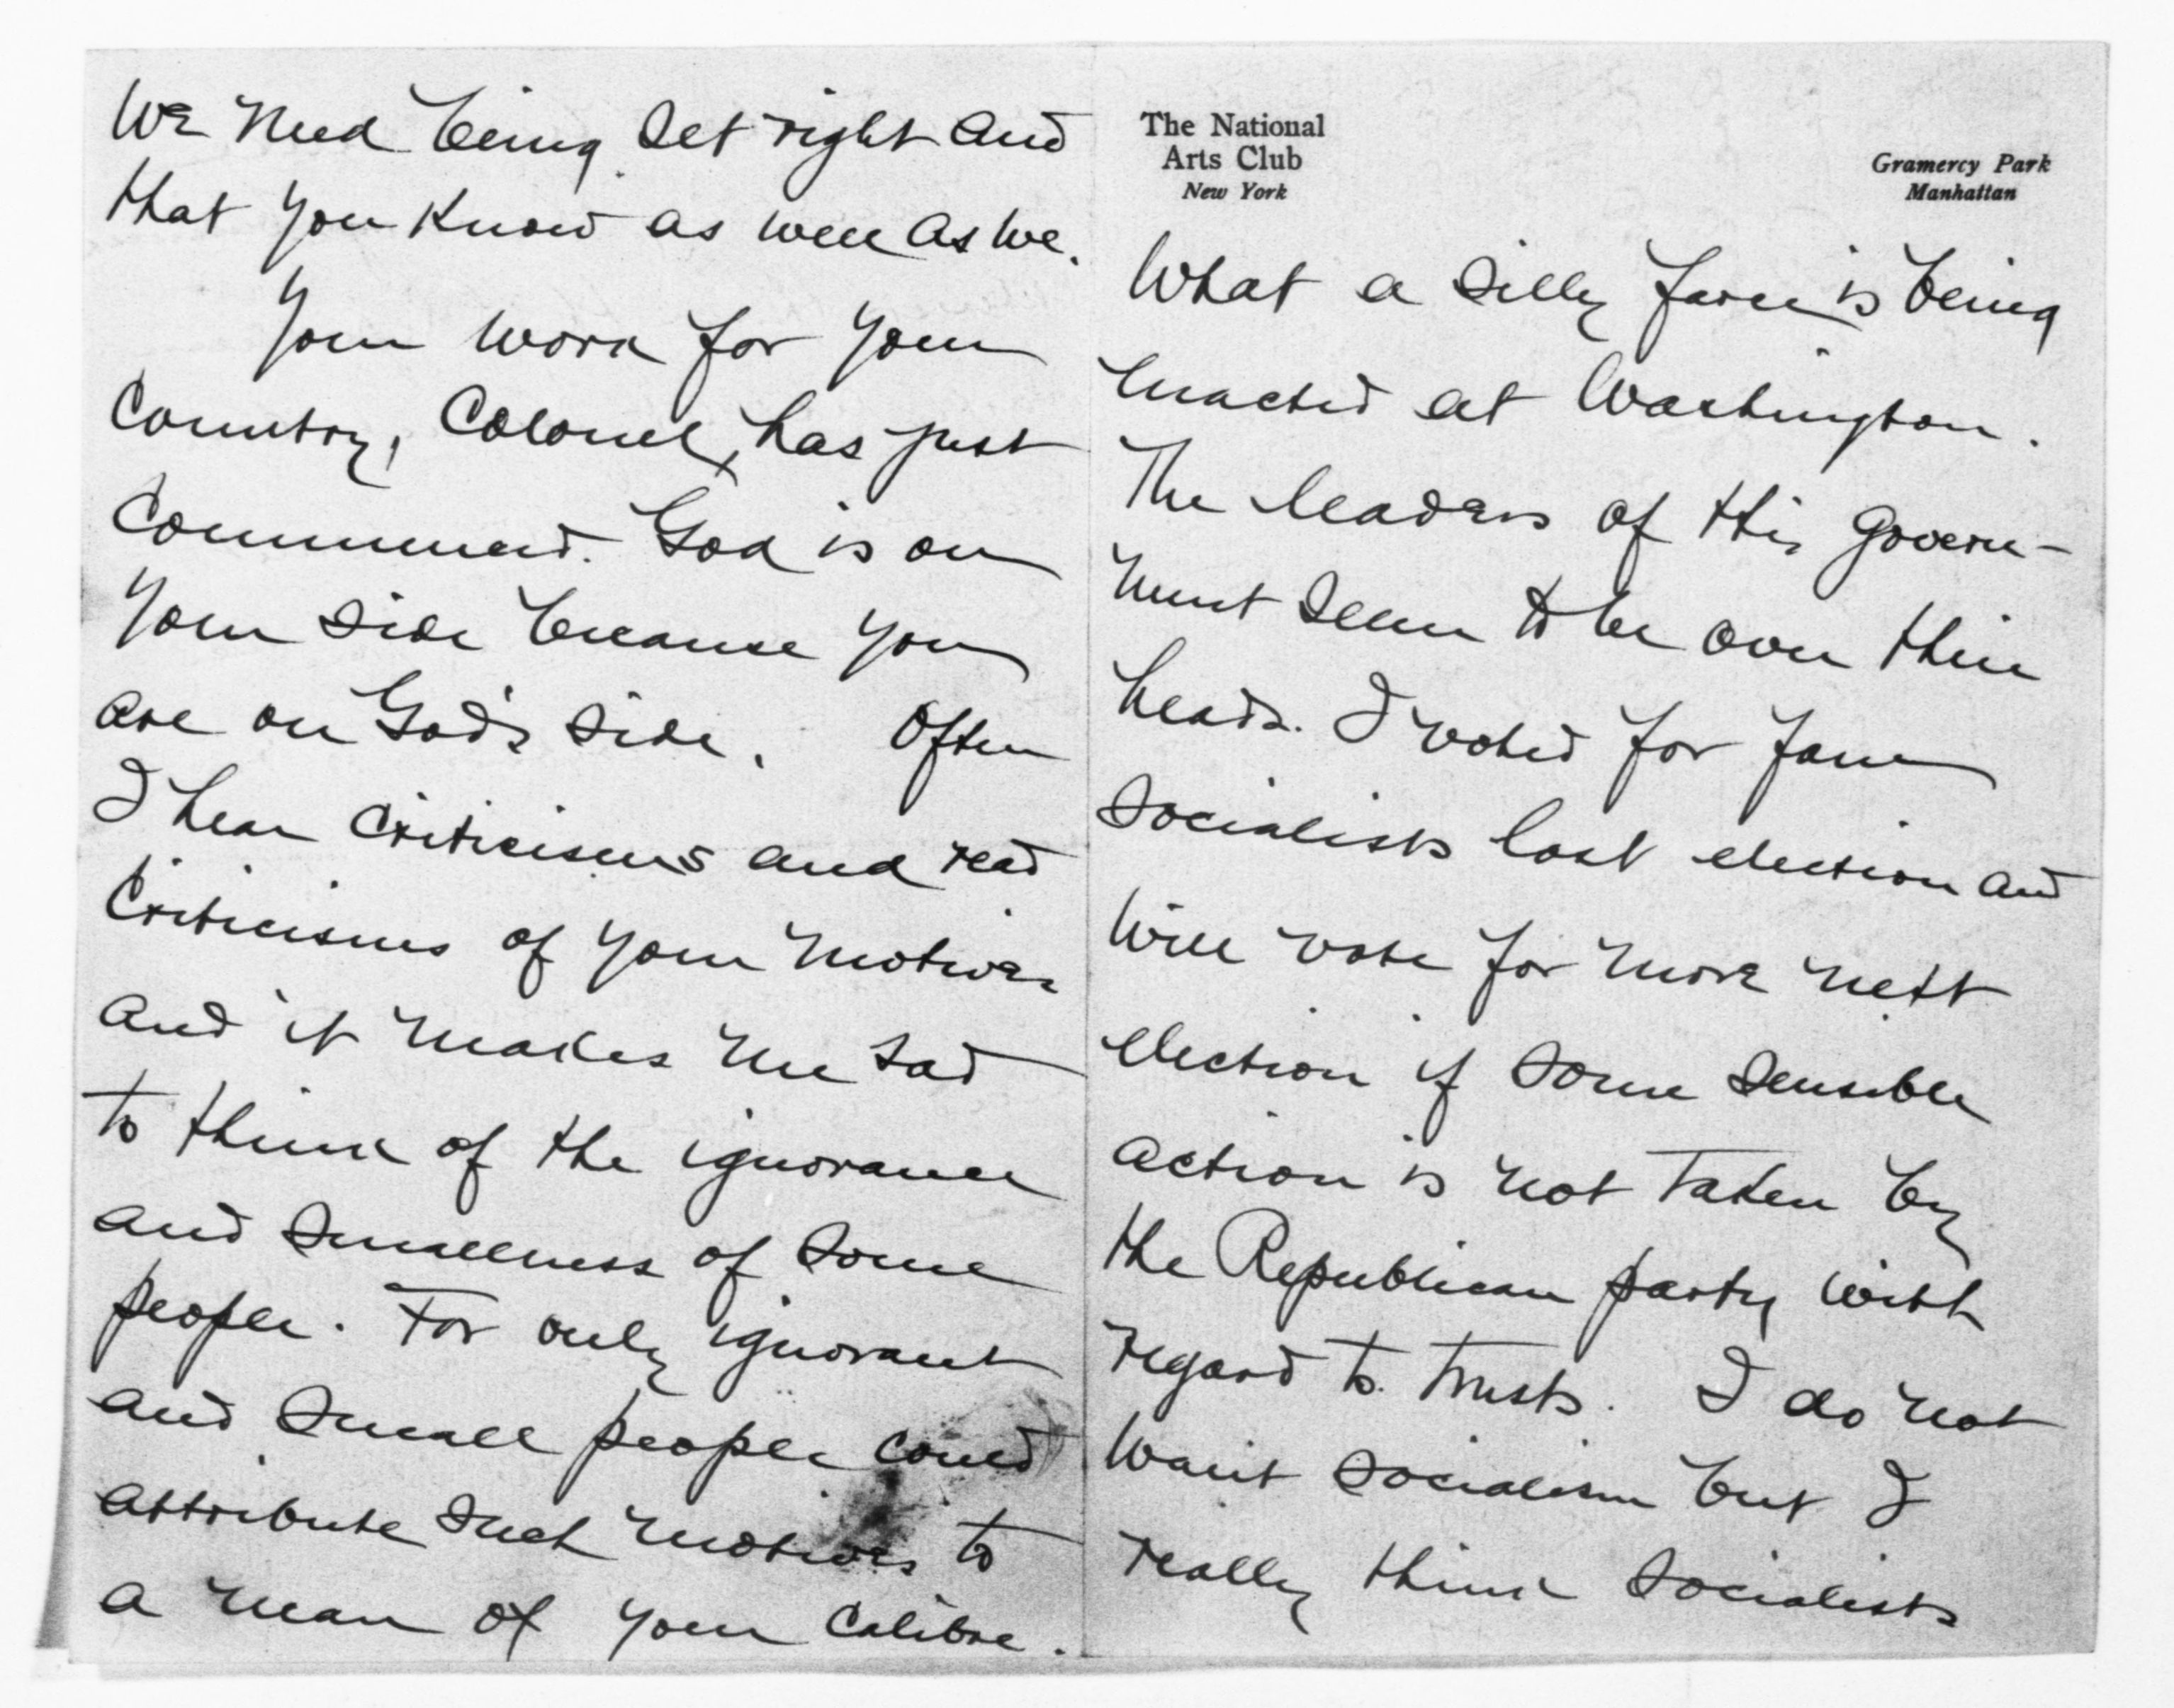 We need being set right and
that you know as well as we.
Your work for your
Country, Colonel, has just
commenced. God is on
your side because you
are on God's side. Often
I hear criticisms and read
criticisms of your motives
and it makes me sad
to think of the ignorance
and smallness of some
people. For only ignorant
and small people could
attribute such motives to
a man of your calibre.
The National
Arts Club
New York
Gramercy Park
Manhattan
What a silly farce is being
enacted at Washington.
The leaders of this govern-
ment seem to be over their
heads. I voted for four
socialists last election and
will vote for more next
election if some sensible
action is not taken by
the Republican party with
regard to trusts. I do not
want socialism but I
really think socialists